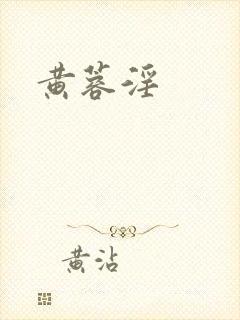 黄蓉淫
黄沾